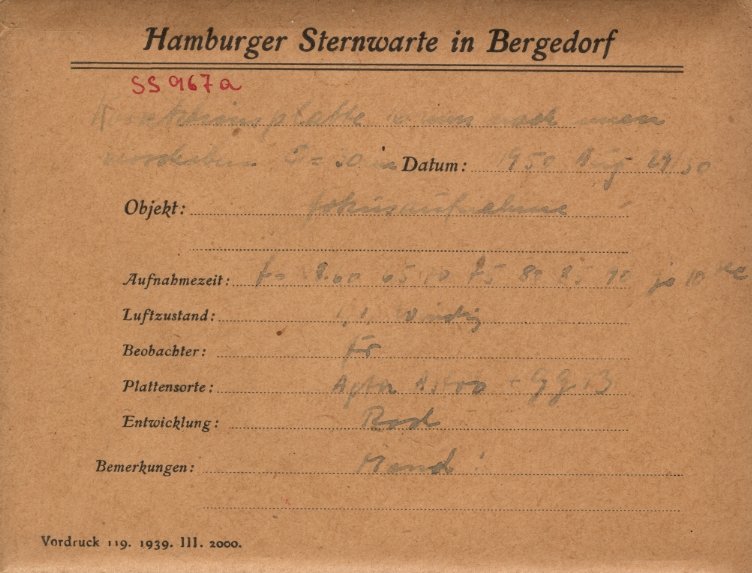 Hamburger Sternwarte in Bergedorf
SS 967a
Korrektionsplatte nach unten
Datum: 1950 Aug 29/30
Objekt: Fokusaufnahme
Aufnahmezeit: f= 8.60 65 70 75 80 85 90 je 10
Luftzustand: windig
Beobachter: Fr
Plattensorte: Agfa Astro + GG 13
Entwicklung: Rod
Bemerkungen: Mond!
Vordruck 119. 1939. III. 2000.